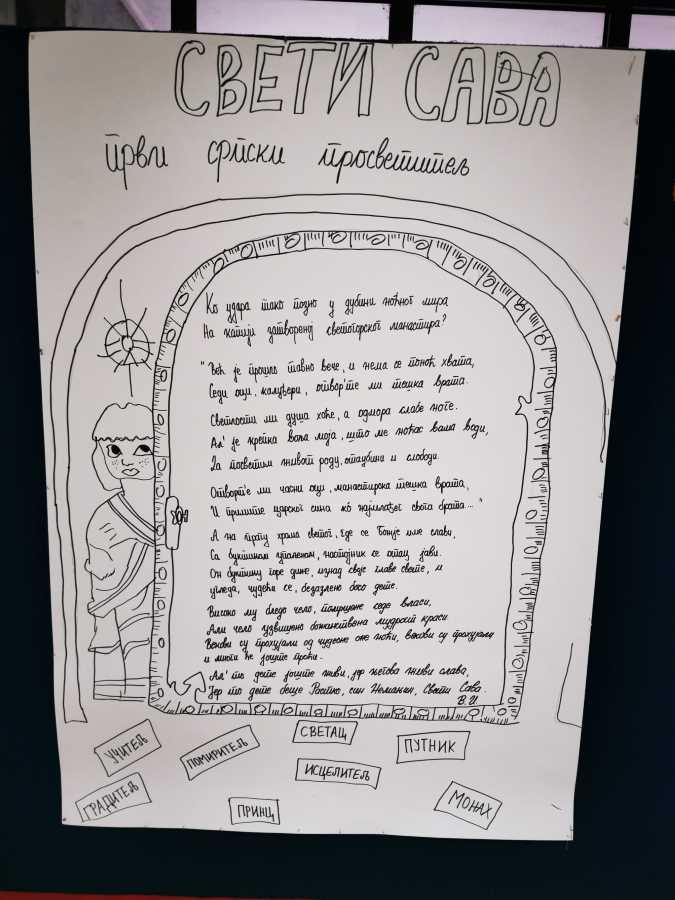 СВЕТИ САВА
први српски просветитељ
Ко удара тако позно у дубини ноћног мира
На капији затвореној светогорског манастира?
" Већ је прошло тавно вече, и нема се поноћ хвата,
Седи оци, калуђери, отвор'те ми тешка врата.
Светлости ми душа хоће, а одмора слабе ноге.
Ал' је крепка воља моја, што ме ноћас вама води,
Да посветим живот роду, отаџбини и слободи.
Отворт'е ми часни оци, манастирска тешка врата,
И примите царског сина ко најмлађег свога брата... "
А на прагу храма светог, где се Божје име слави,
Са буктињом упаљеном, настојник се отац јави.
Он буктињу горе диже, изнад своје главе свете, и
угледа, чудећи се, безазлено босо дете.
Високо му бледо чело, помршене седе власи,
Али чело узвишено божанствена мудрост краси
Векови су прохујали од чудесне оне ноћи, векови су прохујали
и многи ће јоште проћи.
Ал' то дете јоште живи, јер његова живи слава,
Јер то дете беше Растко, син Немањин, Свети Сава.
В.И
УЧИТЕЉ
ПОМИРИТЕЉ
СВЕТАЦ
ПУТНИК
ИСЦЕЛИТЕЉ
ГРАДИТЕЉ
ПРИНЦ
МОНАХ